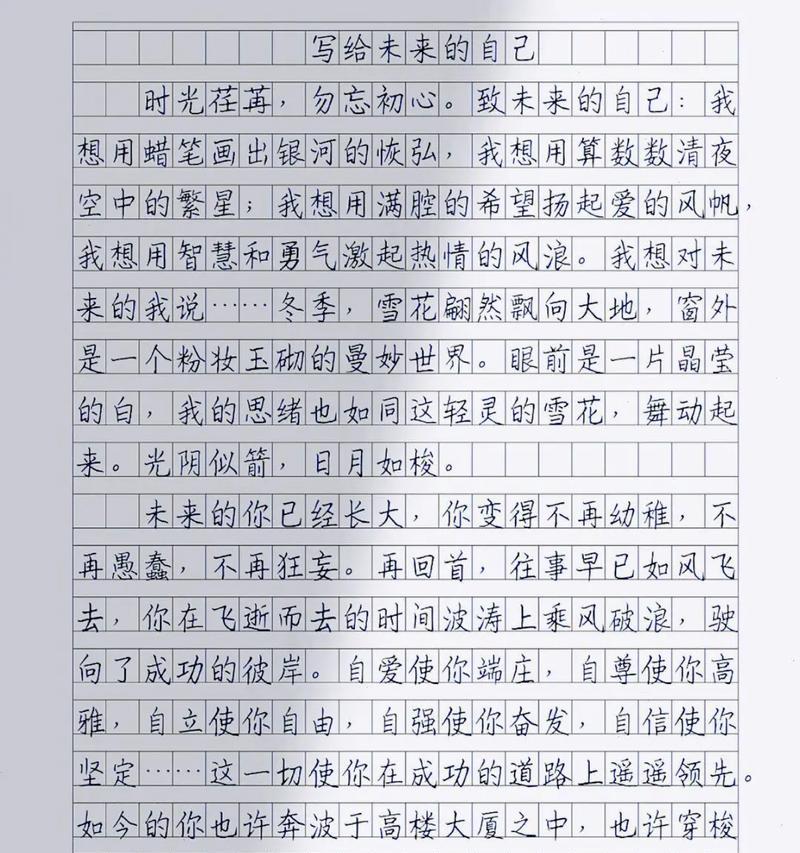 写给未来的自己
时光荏苒，勿忘初心。致未来的自己：我
想用蜡笔画出银河的恢弘，我想用算数数清夜
空中的繁星；我想用满腔的希望扬起爱的风帆，
我想用智慧和勇气激起热情的风浪。我想对未
来的我说……冬季，雪花翩然飘向大地，窗外
是一个粉妆玉砌的曼妙世界。眼前是一片晶莹
的白，我的思绪也如同这轻灵的雪花，舞动起
来。光阴似箭，日月如梭。
未来的你已经长大，你变得不再幼稚，不
再愚蠢，不再狂妄。再回首，往事早已如风飞
去，你在飞逝而去的时间波涛上乘风破浪，驶
向了成功的彼岸。自爱使你端庄，自尊使你高
雅，自立使你自由，自强使你奋发，自信使你
坚定……这一切使你在成功的道路上遥遥领先。
如今的你也许奔波于高楼大厦之中，也许穿梭